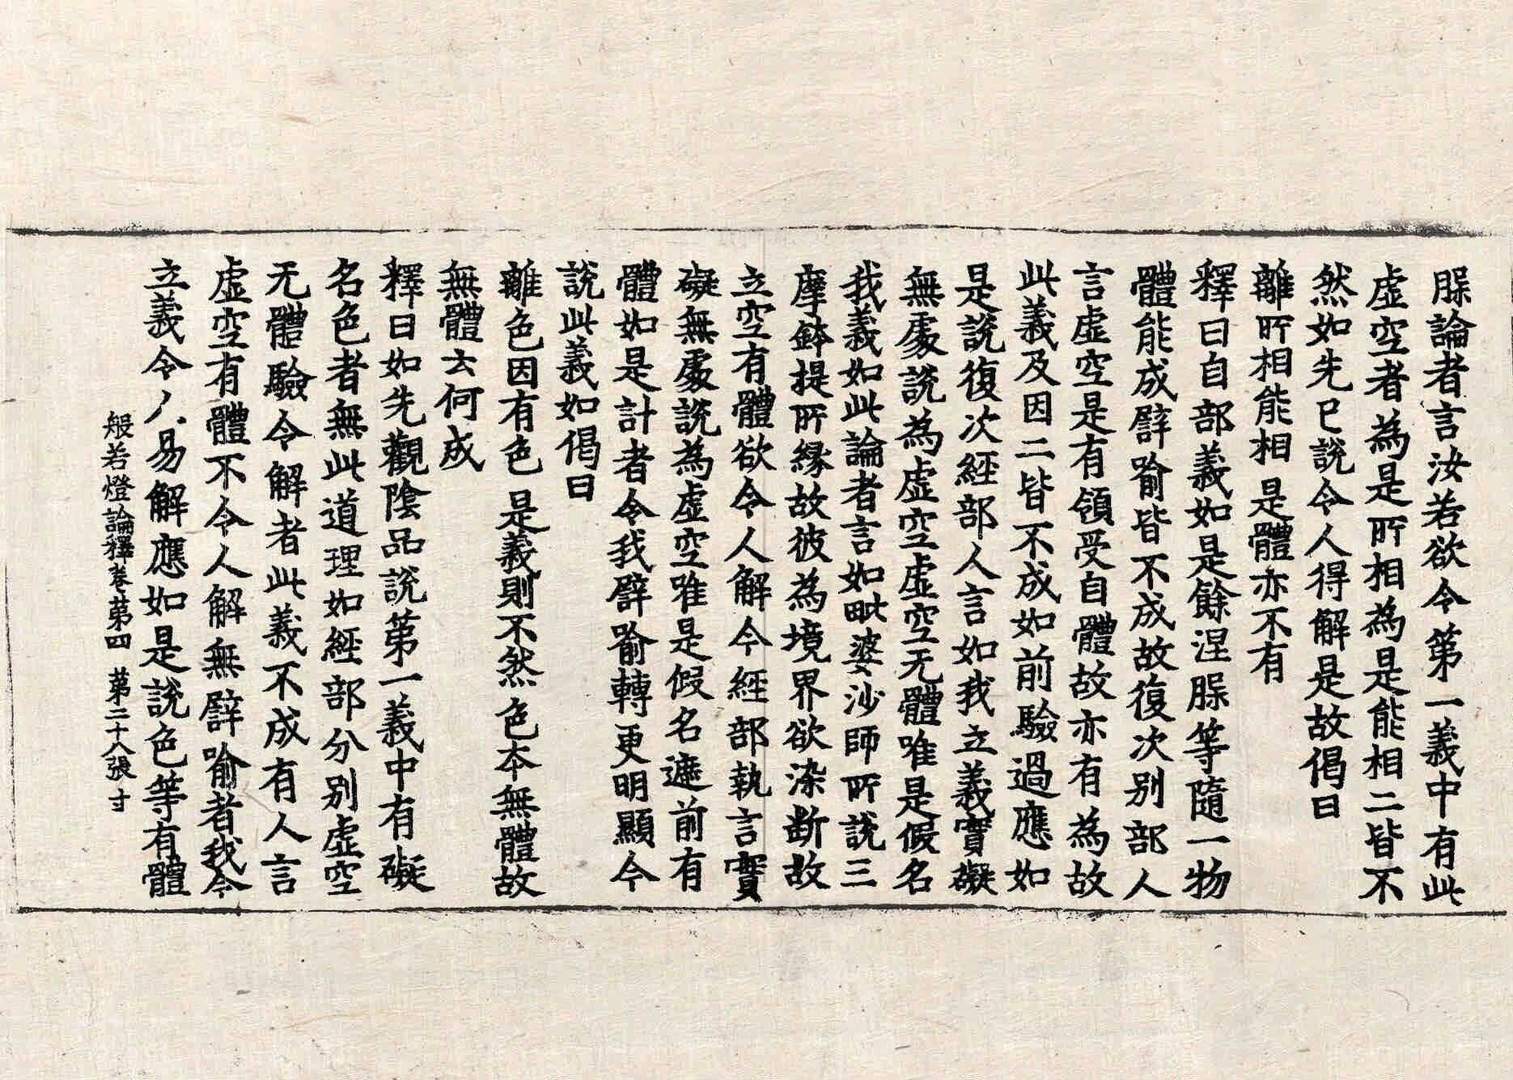 脲論者言汝若欲令第一義中有此
虛空者為是所相為是能相二皆不
然如先已說令人得解是故偈曰
離所相能相 是體亦不有
釋曰自部義如是餘涅脲等隨一物
體能成譬喻皆不成故復次別部人
言虛空是有領受自體故亦有為故
此義及因二皆不成如前驗過應如
是說復次經部人言如我立義實礙
無處說為虛空虛空无體唯是假名
我義如此論者言如毗婆沙師所說三
摩鉢提所緣故彼為境界欲染斷故
立空有體欲令人解今經部執言實
礙無處說為虛空唯是假名遮前有
體如是計者令我譬喻轉更明顯今
說此義如偈曰
離色因有色 是義則不然色本無體故
無體云何成
釋曰如先觀陰品說第一義中有礙
名色者無此道理如經部分別虛空
无體驗令解者此義不成有人言
虛空有體不令人解無譬喻者我今
立義令人易解應如是說色等有體
般若燈論釋卷第四 第二十八張 寸